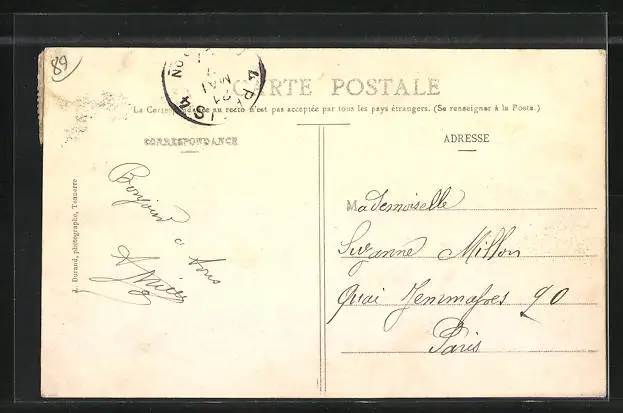 89
CARTE POSTALE
La Correspondance au recto n'est pas acceptée par tous les pays étrangers. (Se renseigner à la Poste.)
CORRESPONDANCE
ADRESSE
Bonjour
a tous
Mademoiselle
Suzanne Millon
Quai Jemmapes 90
Paris
Durand, photographe, Tonnerre